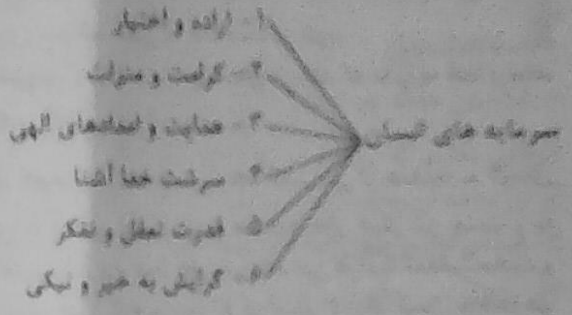 سرمایه های انسان
۱- اراده و اختیار
۲- کرامت و منزلت
۳- هدایت و امدادهای الهی
۴- سرشت خدا آشنا
۵- قدرت تعقل و تفکر
۶- گرایش به خیر و نیکی